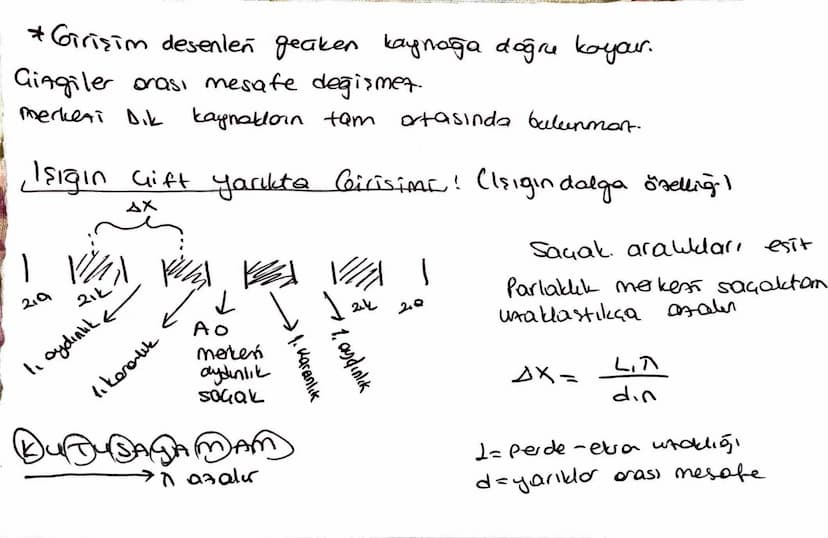 * Girişim desenleri geciken kaynağa doğru kayar.
Çizgiler arası mesafe değişmez.
merkezi D.k kaynakların tam ortasında bulunmaz.
Işığın Çift Yarıkta Girişimi! (Işığın dalga özelliği)
ΔX
2.A 2.k 2.k 2.A
1. aydınlık
1. karanlık
AO
merkezi
aydınlık
saçak
1. karanlık
1. aydınlık
Saçak aralıkları eşit
Parlaklık merkezi saçaktan
uzaklaştıkça azalır
ΔX = L.λ / d.n
KUTUSAYAMAM
→ λ azalır
L = perde - uzaklığı
d = yarıklar arası mesafe